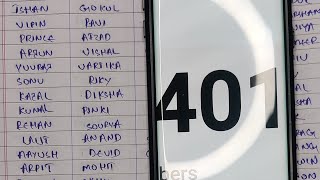 ISHAN GOKUL
VIPIN RAVI
PRINCE AFZAD
ARJUN VISHAL
YUVRAJ VARTIKA
SONU RIKY
KAJAL DIKSHA
KUNAL PINKI
REHAN SOURYA
LALIT ANAND
AAYUSH DEVID
ARPIT MOHIT
401
bers